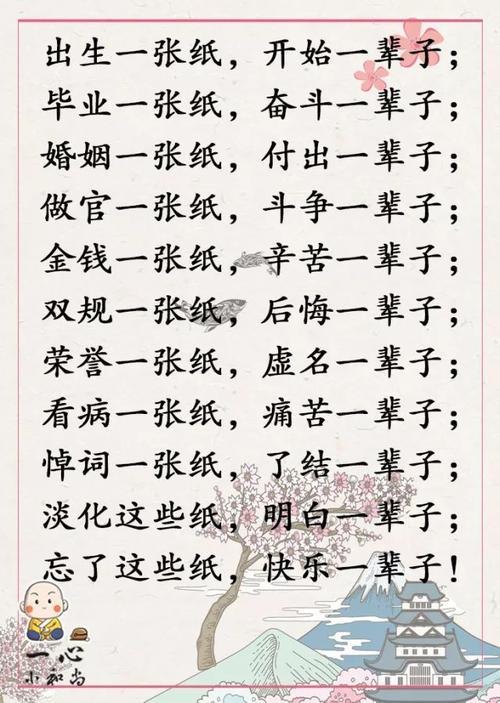 出生一张纸，开始一辈子；
毕业一张纸，奋斗一辈子；
婚姻一张纸，付出一辈子；
做官一张纸，斗争一辈子；
金钱一张纸，辛苦一辈子；
双规一张纸，后悔一辈子；
荣誉一张纸，虚名一辈子；
看病一张纸，痛苦一辈子；
悼词一张纸，了结一辈子；
淡化这些纸，明白一辈子；
忘了这些纸，快乐一辈子！
一心
小和尚